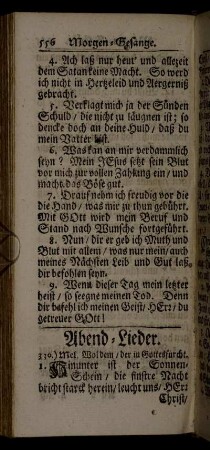 556 Morgen-Gesänge.
4. Ach laß nur heut' und allezeit
dem Satan keine Macht. So werd
ich nicht in Hertzeleid und Aergerniß
gebracht.
5. Verklagt mich ja der Sünden
Schuld / die nicht zu läugnen ist; so
dencke doch an deine Huld / daß du
mein Vatter bist.
6. Was kan an mir verdammlich
seyn? Mein JEsus setzt sein Blut
vor mich zur vollen Zahlung ein / und
macht das Böse gut.
7. Drauf nehm ich freudig vor die
die Hand / was mir zu thun gebührt.
Mit GOtt wird mein Beruf und
Stand nach Wunsche fortgeführt.
8. Nun / dir ergeb ich Muth und
Blut mit allem / was nur mein / auch
meines Nächsten Leib und Gut laß
dir befohlen seyn.
9. Wenn dieser Tag mein letzter
heist / so seegne meinen Tod. Denn
dir befehl ich meinen Geist / HErr / du
getreuer GOtt!
Abend-Lieder.
339.) Mel. Wol dem / der in Gottesfurcht.
1. Hinunter ist der Sonnen-
Schein / die finstre Nacht
bricht starck herein / leucht uns / HErr
Christ /